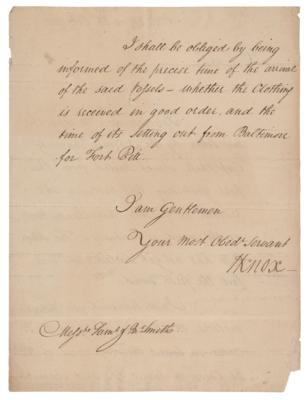 I shall be obliged by being
informed of the precise time of the arrival
of the said Vessels – whether the Clothing
is received in good order, and the
time of its setting out from Baltimore
for Fort Pitt.
I am Gentlemen
Your Most Obedt Servant
HKnox
Messrs Saml & Jn Smith